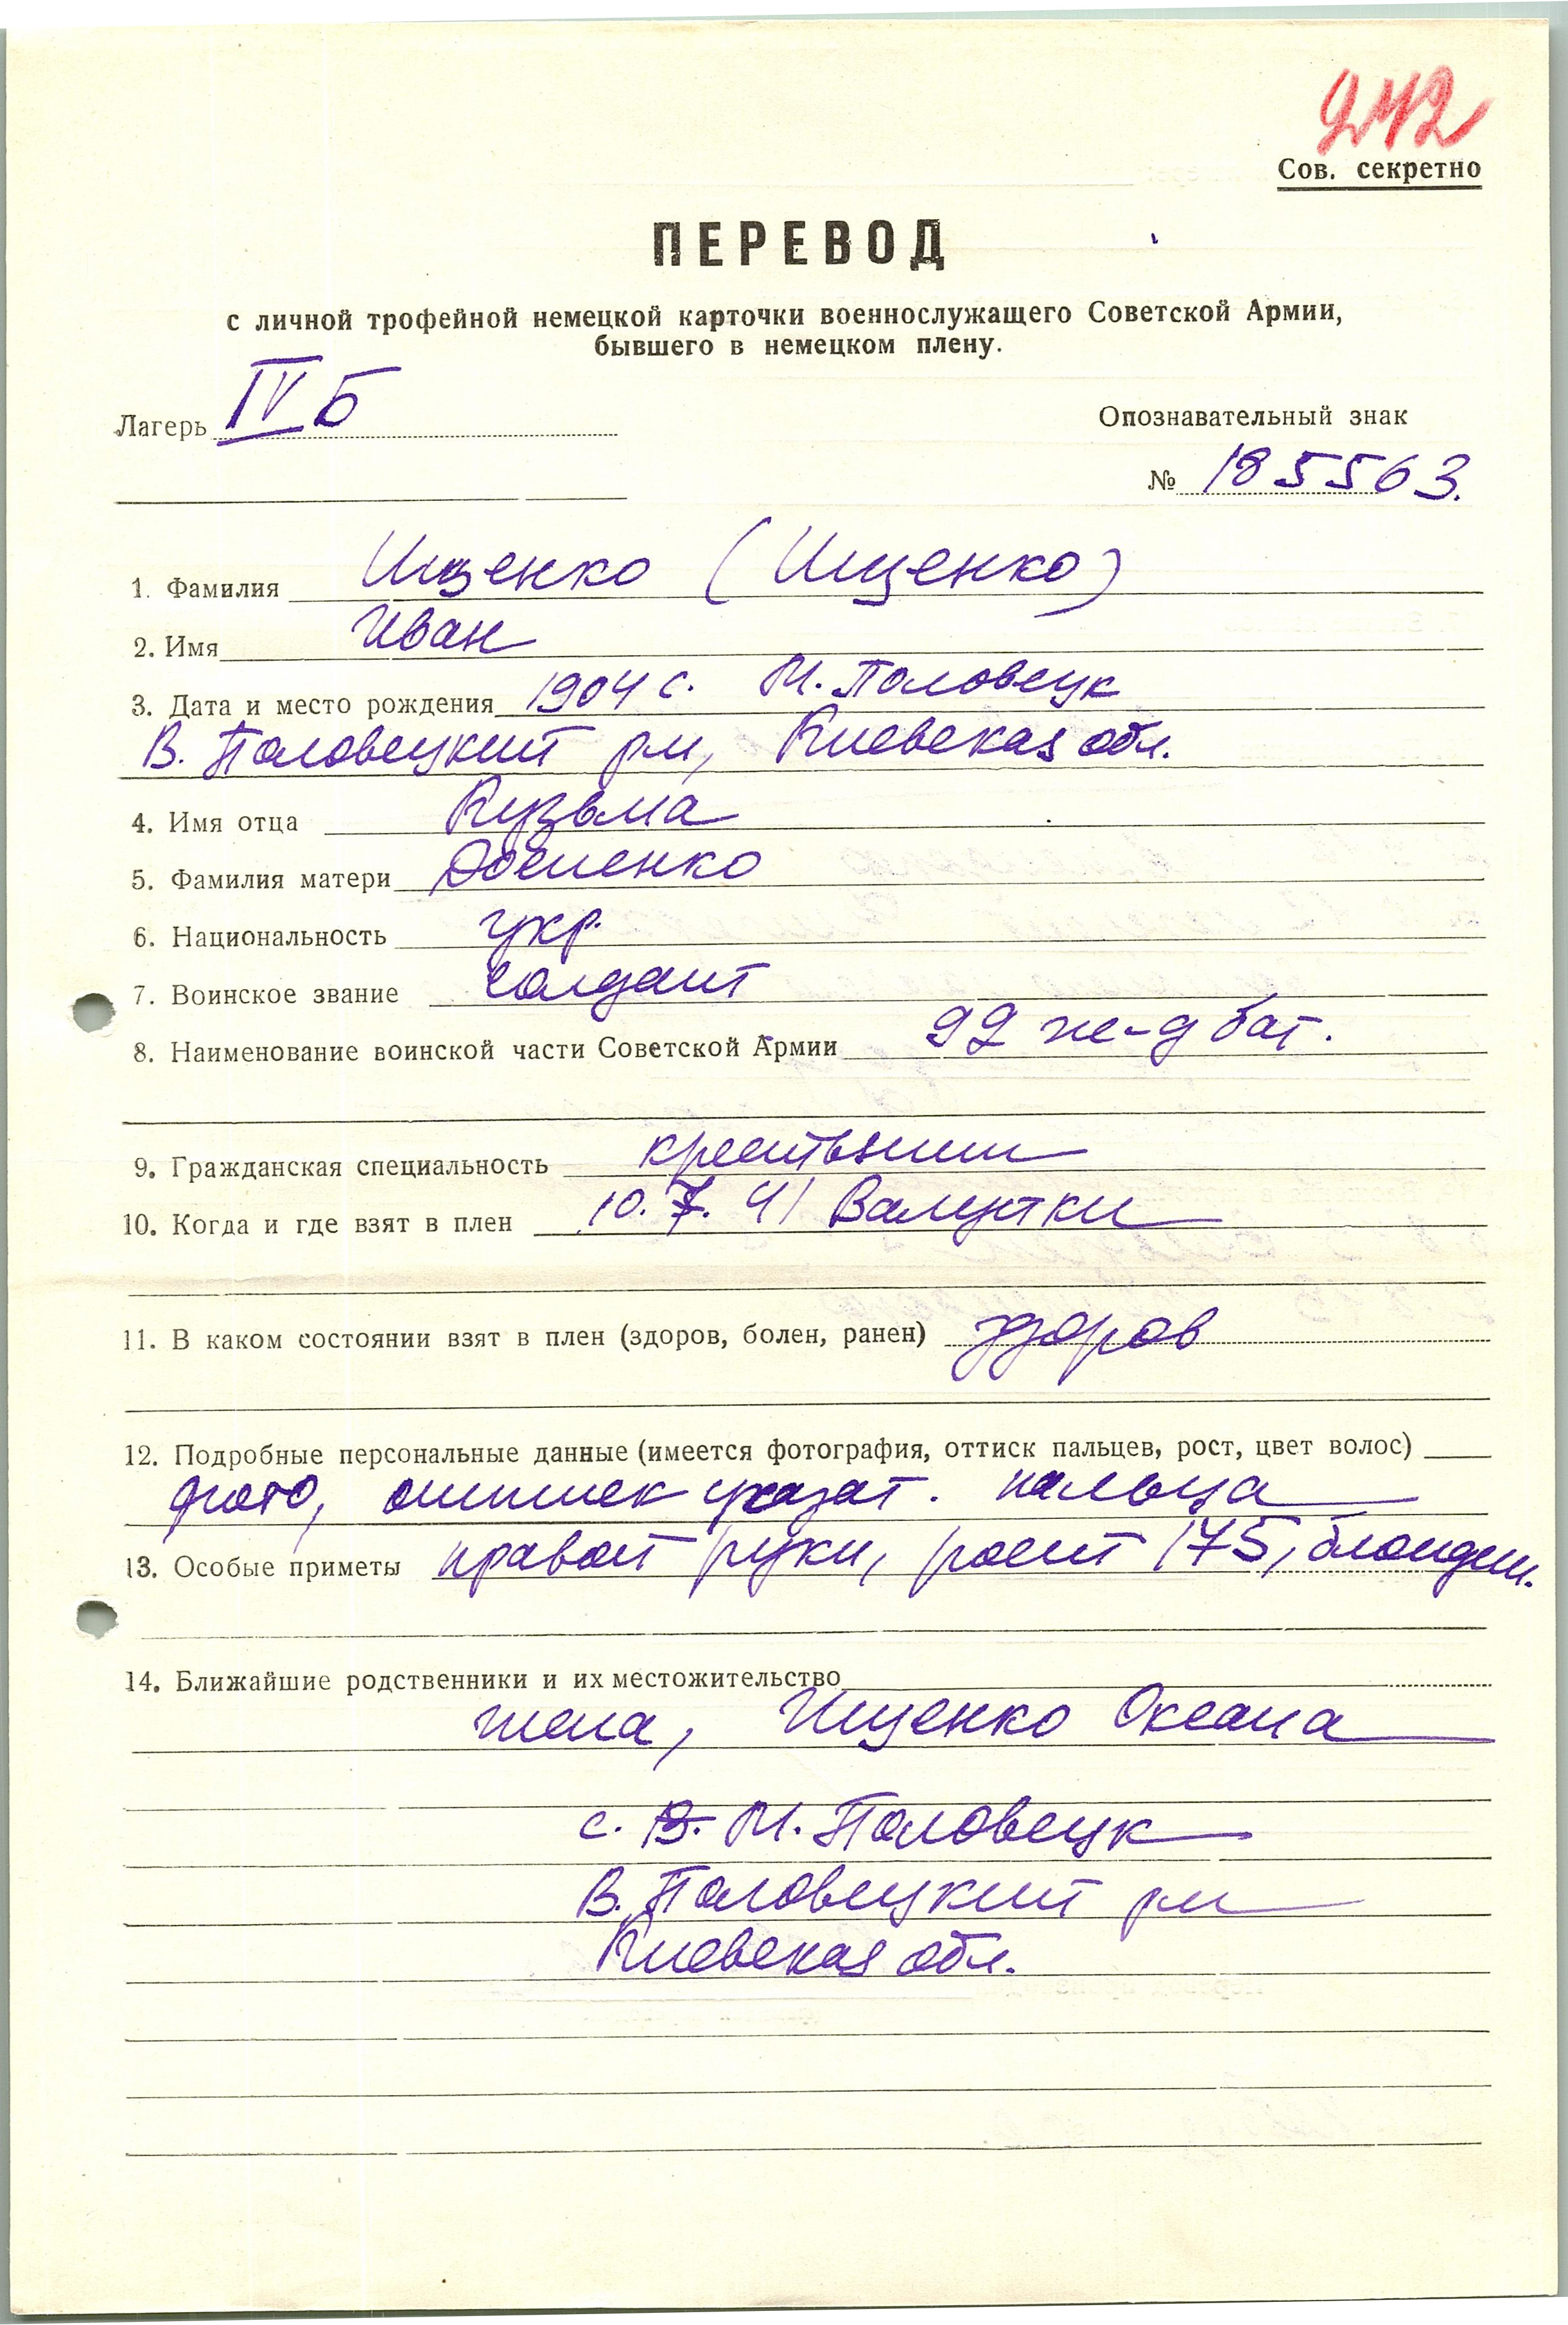 242
Сов. секретно
ПЕРЕВОД
с личной трофейной немецкой карточки военнослужащего Советской Армии,
бывшего в немецком плену.
Лагерь IV Б
Опознавательный знак
№ 185563.
1. Фамилия Ищенко (Ищенко)
2. Имя Иван
3. Дата и место рождения 1904 с. М. Половецк
В. Половецкий р-н, Киевская обл.
4. Имя отца Кузьма
5. Фамилия матери
6. Национальность укр.
7. Воинское звание солдат
8. Наименование воинской части Советской Армии 92 ж-д бат.
9. Гражданская специальность крестьянин
10. Когда и где взят в плен 10. 7. 41
11. В каком состоянии взят в плен (здоров, болен, ранен) здоров
12. Подробные персональные данные (имеется фотография, оттиск пальцев, рост, цвет волос)
фото, оттиск указат. пальца
13. Особые приметы правой руки, рост 175, блондин.
14. Ближайшие родственники и их местожительство
жена, Ищенко Оксана
с. В. М. Половецк
В. Половецкий р-н
Киевская обл.